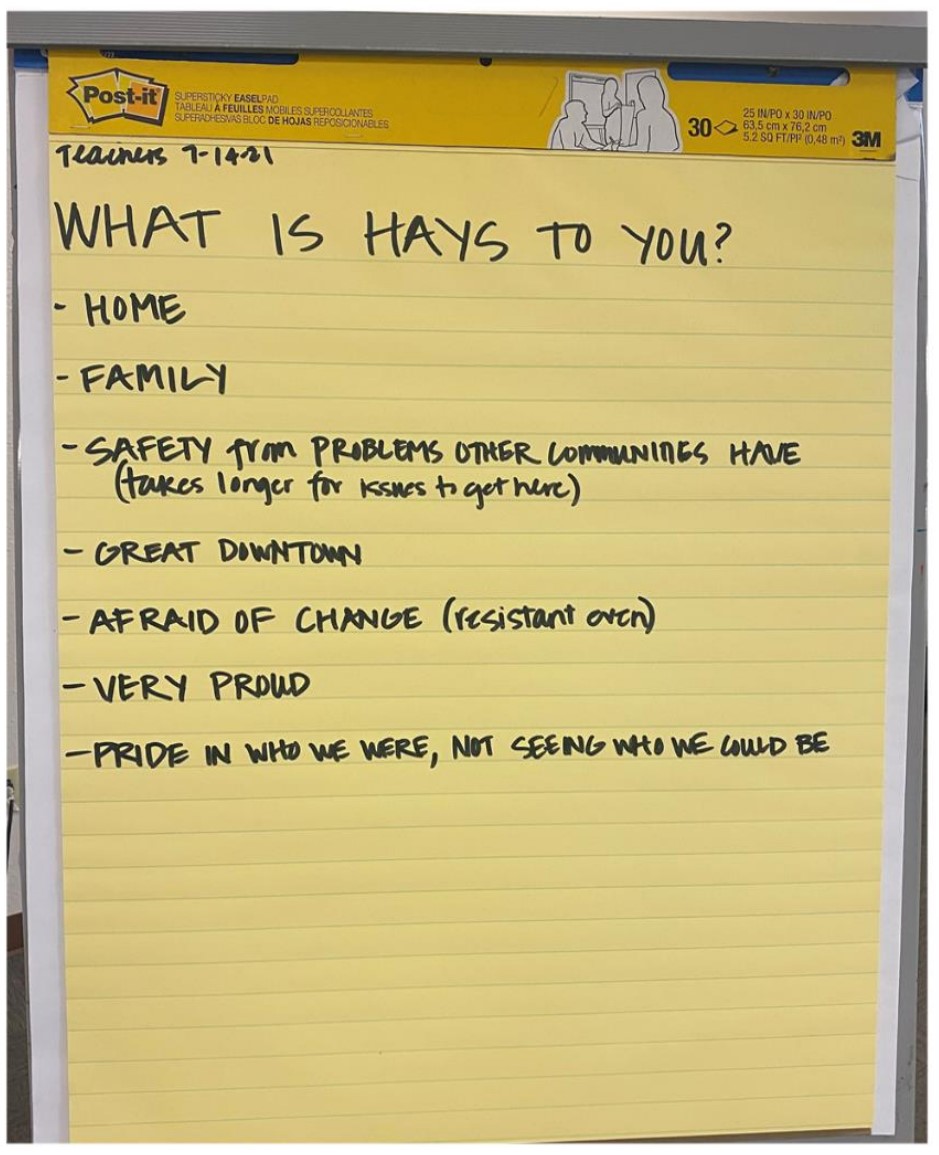 Post-it
SUPERSTICKY EASELPAD
TABLEAU À FEUILLES MOBILES SUPERCOLLANTES
SUPERADHESIVAS BLOC DE HOJAS REPOSICIONABLES
30
25 IN/PO x 30 IN/PO
63,5 cm x 76,2 cm
5.2 SQ FT/PI² (0,48 m²)
3M
Teachers 7-14-21
WHAT IS HAYS TO YOU?
- HOME
- FAMILY
- SAFETY from PROBLEMS OTHER COMMUNITIES HAVE
(takes longer for issues to get here)
- GREAT DOWNTOWN
- AFRAID OF CHANGE (resistant even)
- VERY PROUD
- PRIDE IN WHO WE WERE, NOT SEEING WHO WE COULD BE